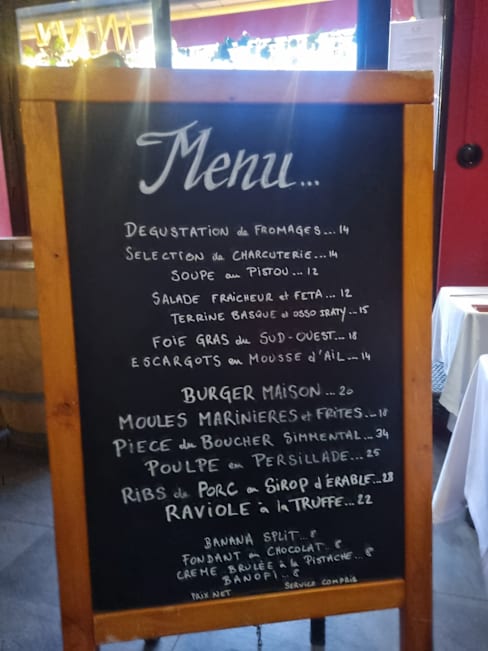 Menu...
DEGUSTATION de FROMAGES...14
SELECTION de CHARCUTERIE...14
SOUPE au PISTOU...12
SALADE FRAICHEUR et FETA...12
TERRINE BASQUE et OSSO IRATY...15
FOIE GRAS du SUD-OUEST...18
ESCARGOTS en MOUSSE d'AIL...14
BURGER MAISON...20
MOULES MARINIERES et FRITES...18
PIECE du BOUCHER SIMMENTAL...34
POULPE en PERSILLADE...25
RIBS de PORC au SIROP d'ÉRABLE...28
RAVIOLE à la TRUFFE...22
BANANA SPLIT...8
FONDANT au CHOCOLAT..8
CREME BRULÉE à la PISTACHE...8
BANOFI...8
PRIX NET SERVICE COMPRIS